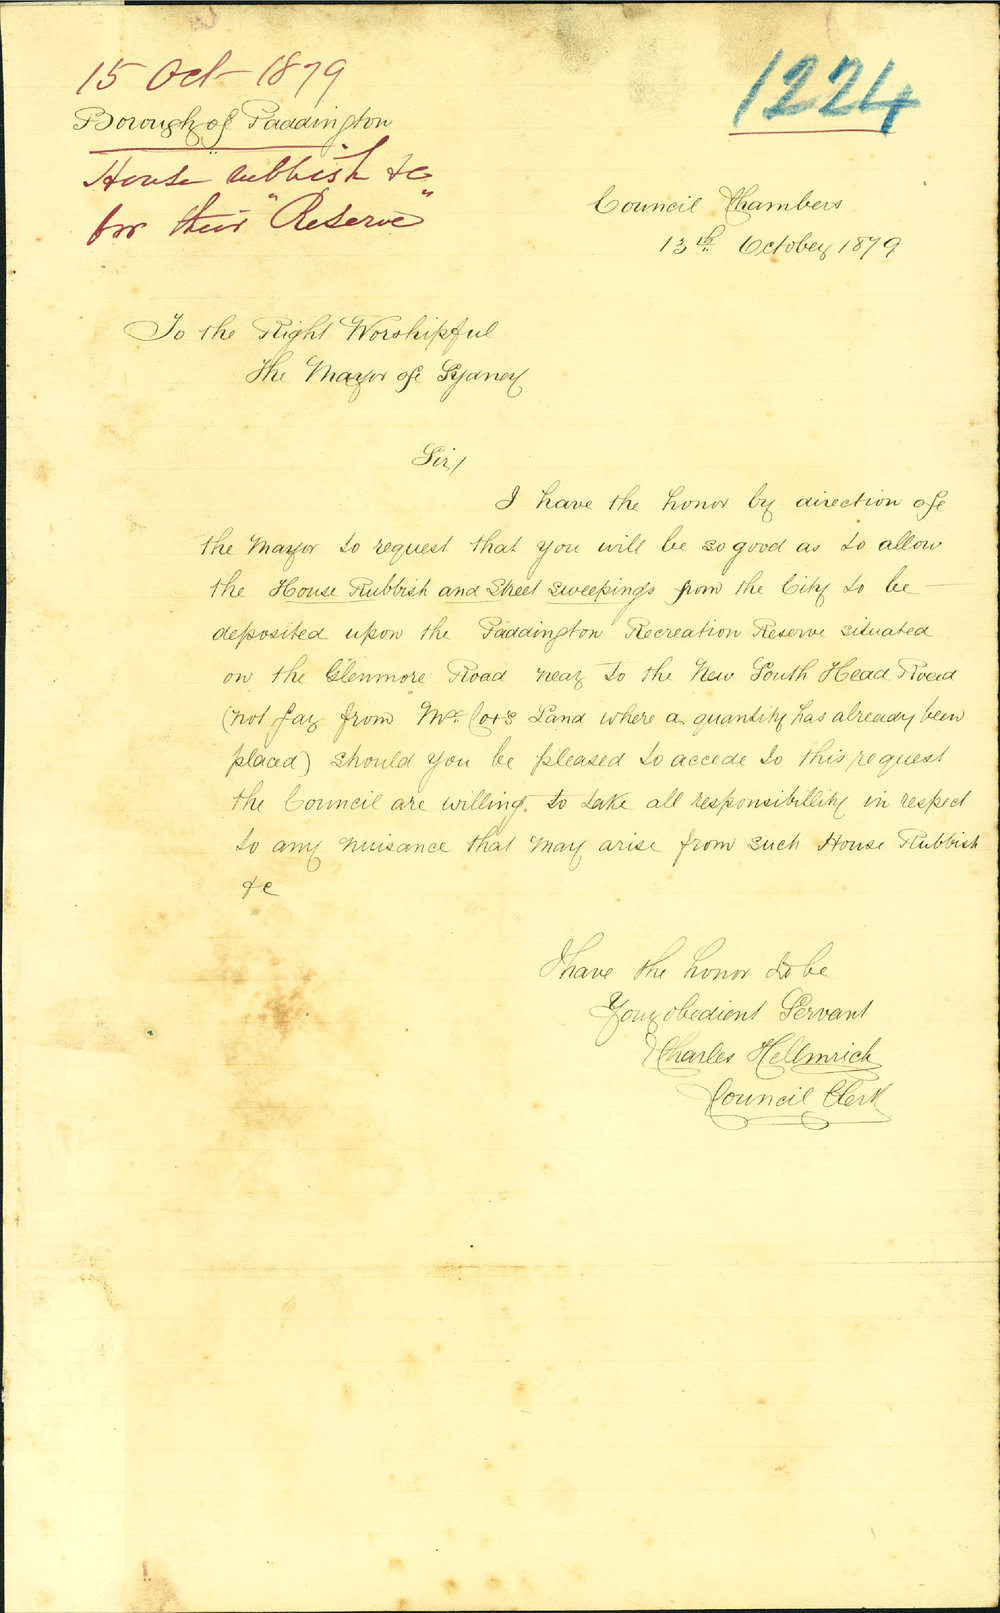 15 Oct - 1879
1224
Borough of Paddington
House rubbish &c
for their "Reserve"
Council Chambers
13th October 1879
To the Right Worshipful
The Mayor of Sydney
Sir/
I have the honor by direction of
the Mayor to request that you will be so good as to allow
the House Rubbish and Street Sweepings from the City to be
deposited upon the Paddington Recreation Reserve situated
on the Glenmore Road near to the New South Head Road
(not far from Mr. Cox's Land where a quantity has already been
placed) should you be pleased to accede to this request
the Council are willing to take all responsibillity in respect
to any nuisance that may arise from such House Rubbish
&c
I have the honor to be
Your obedient Servant
Charles Hellmrich
Council Clerk